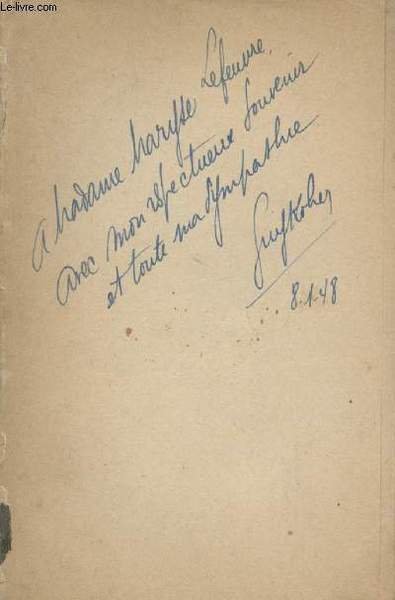 Le-livre.com
A Madame Maryse Lefeuvre,
avec mon respectueux souvenir
et toute ma sympathie
8.1.48